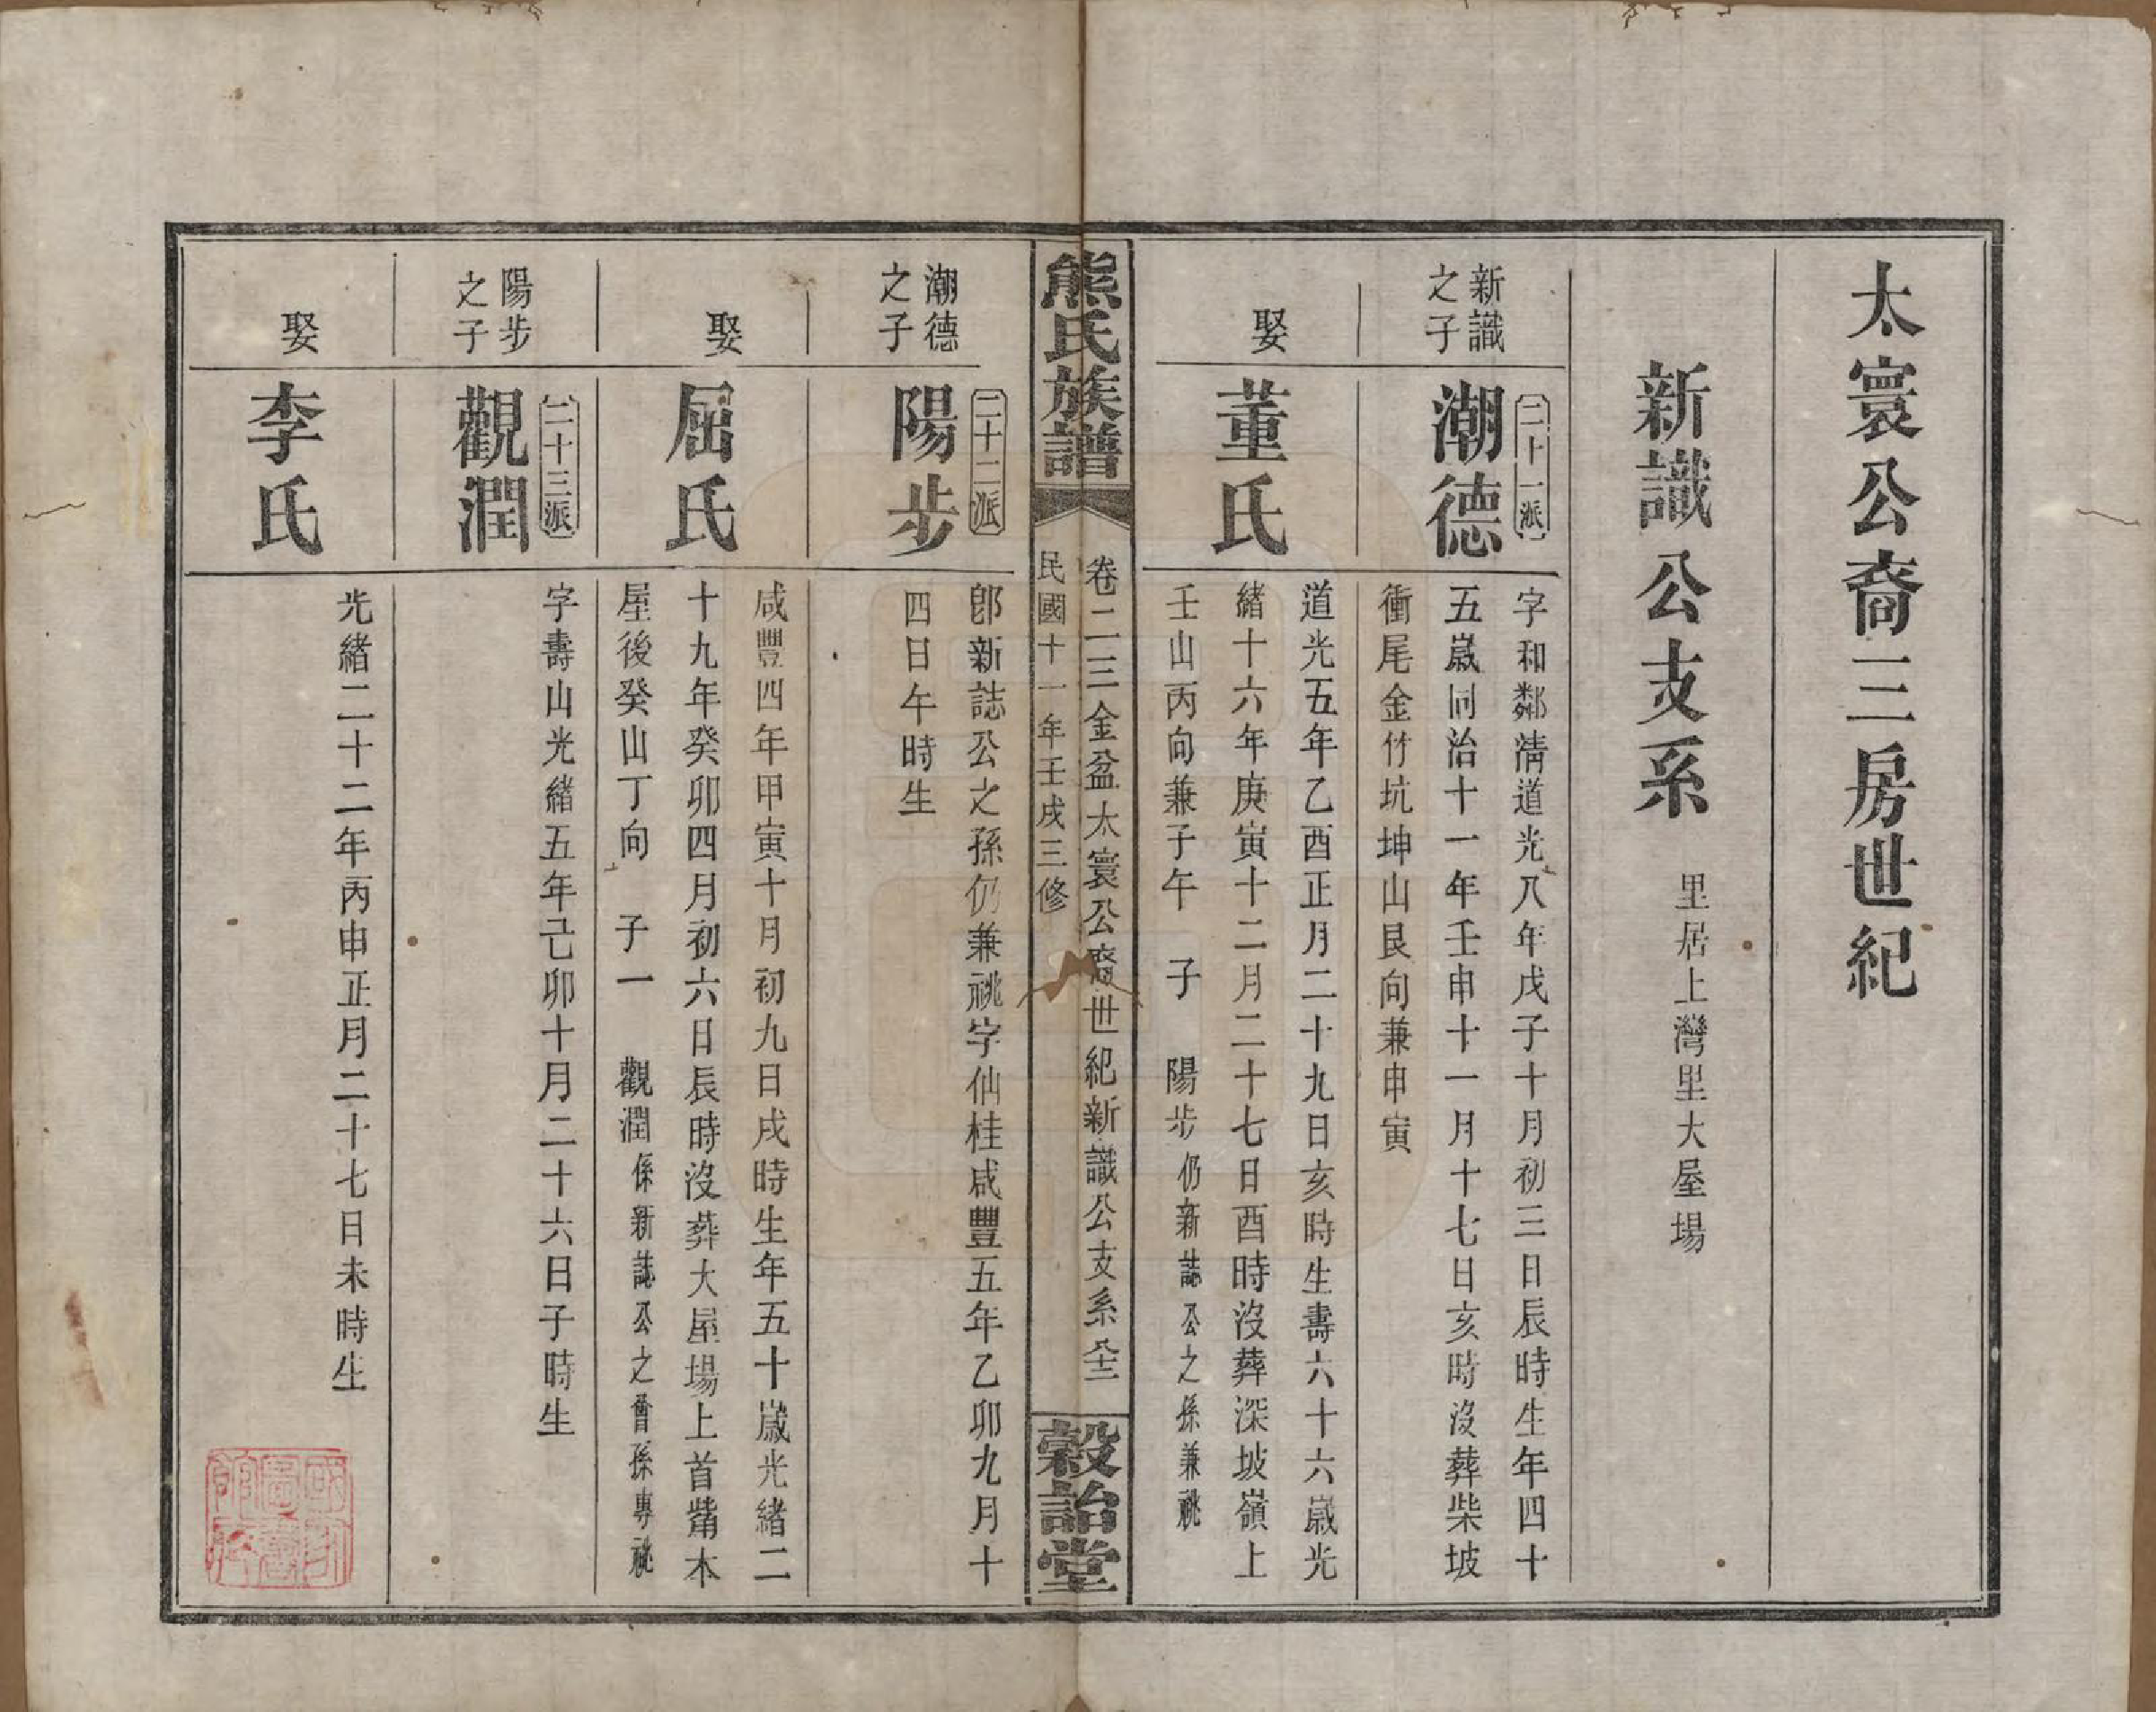 太寰公裔三房世紀
新識公支系
里居上灣里大屋場
新識
之子
二十一派
潮德
字和鄰淸道光八年戊子十月初三日辰時生年四十
五歲同治十一年壬申十一月十七日亥時沒葬柴坡
衝尾金竹坑坤山艮向兼申寅
娶
董氏
道光五年乙酉正月二十九日亥時生壽六十六歲光
緒十六年庚寅十二月二十七日酉時沒葬深坡嶺上
壬山丙向兼子午 子 陽步仍新誌公之孫兼祧
熊氏族譜
卷二三金盆太寰公裔世紀新識公支系
民國十一年壬戌三修
穀詒堂
潮德
之子
二十二派
陽步
卽新誌公之孫仍兼祧字仙桂咸豐五年乙卯九月十
四日午時生
娶
屈氏
咸豐四年甲寅十月初九日戌時生年五十歲光緒二
十九年癸卯四月初六日辰時沒葬大屋場上首觜本
屋後癸山丁向 子一 觀潤係新誌公之曾孫專祧
陽步
之子
二十三派
觀潤
字壽山光緒五年己卯十月二十六日子時生
娶
李氏
光緒二十二年丙申正月二十七日未時生